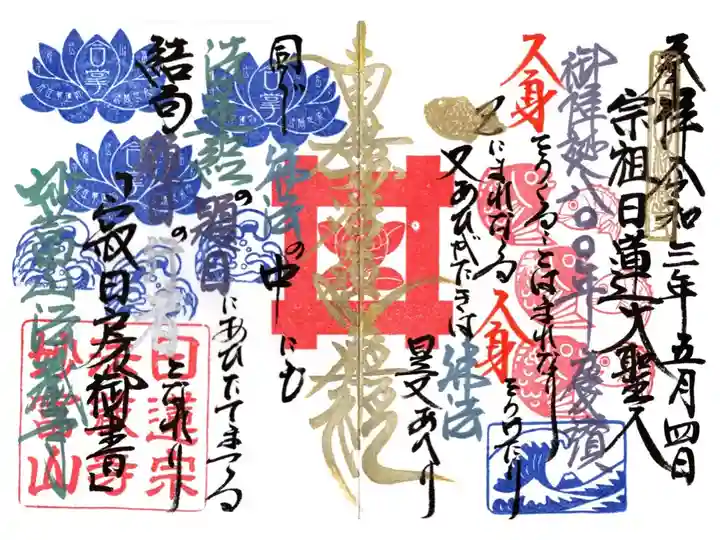 奉拝 令和三年五月四日
宗祖日蓮大聖人
慶讃
人身をうくることはまれなり
にまれなる人身をうけたり
又あひがたきは佛法
是又あへり
南無妙法蓮華経
同じ佛法の中にも
法華経の題目にあひたてまつる
結句題目の行者となれり
「寂日房御書」
日蓮宗
合掌
合掌
合掌